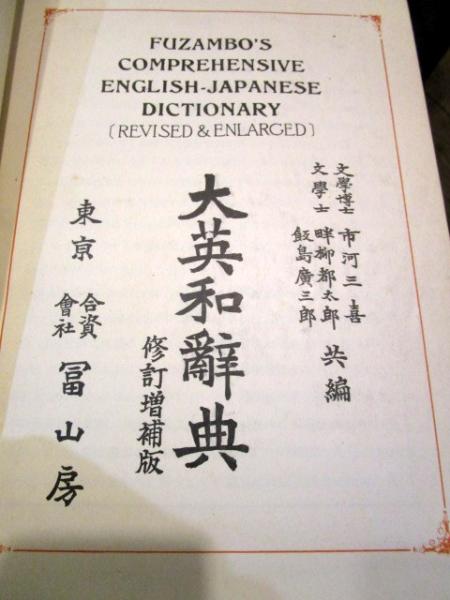 FUZAMBO'S
COMPREHENSIVE
ENGLISH-JAPANESE
DICTIONARY
(REVISED & ENLARGED)
文學博士 市河三喜
文學士 畔柳都太郎
飯島廣三郎
共編
大英和辭典
修訂增補版
東京 合資會社 冨山房